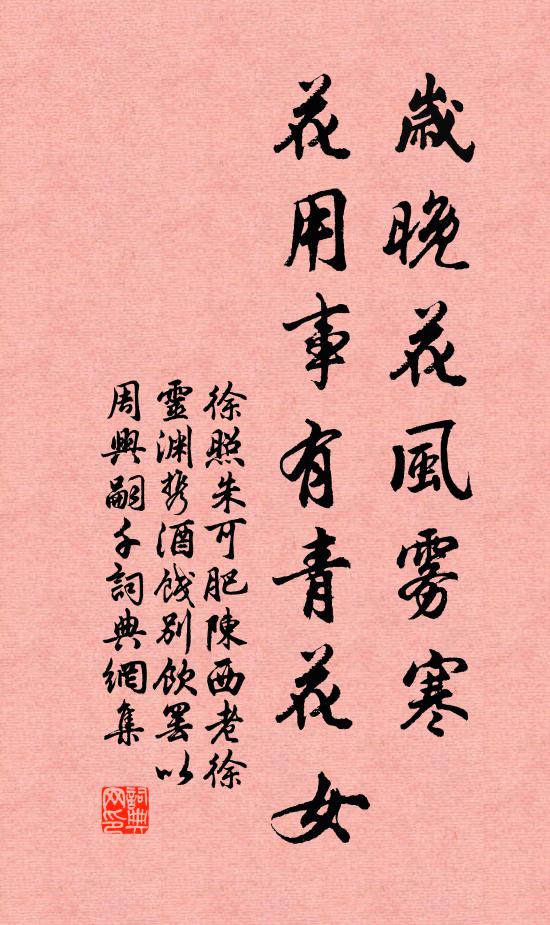 歲晚花風雾寒
花用事有青花女
徐照朱可肥陳西老徐
靈渊携酒餞别飲罢以
周興嗣千詞典網集
詞典网印